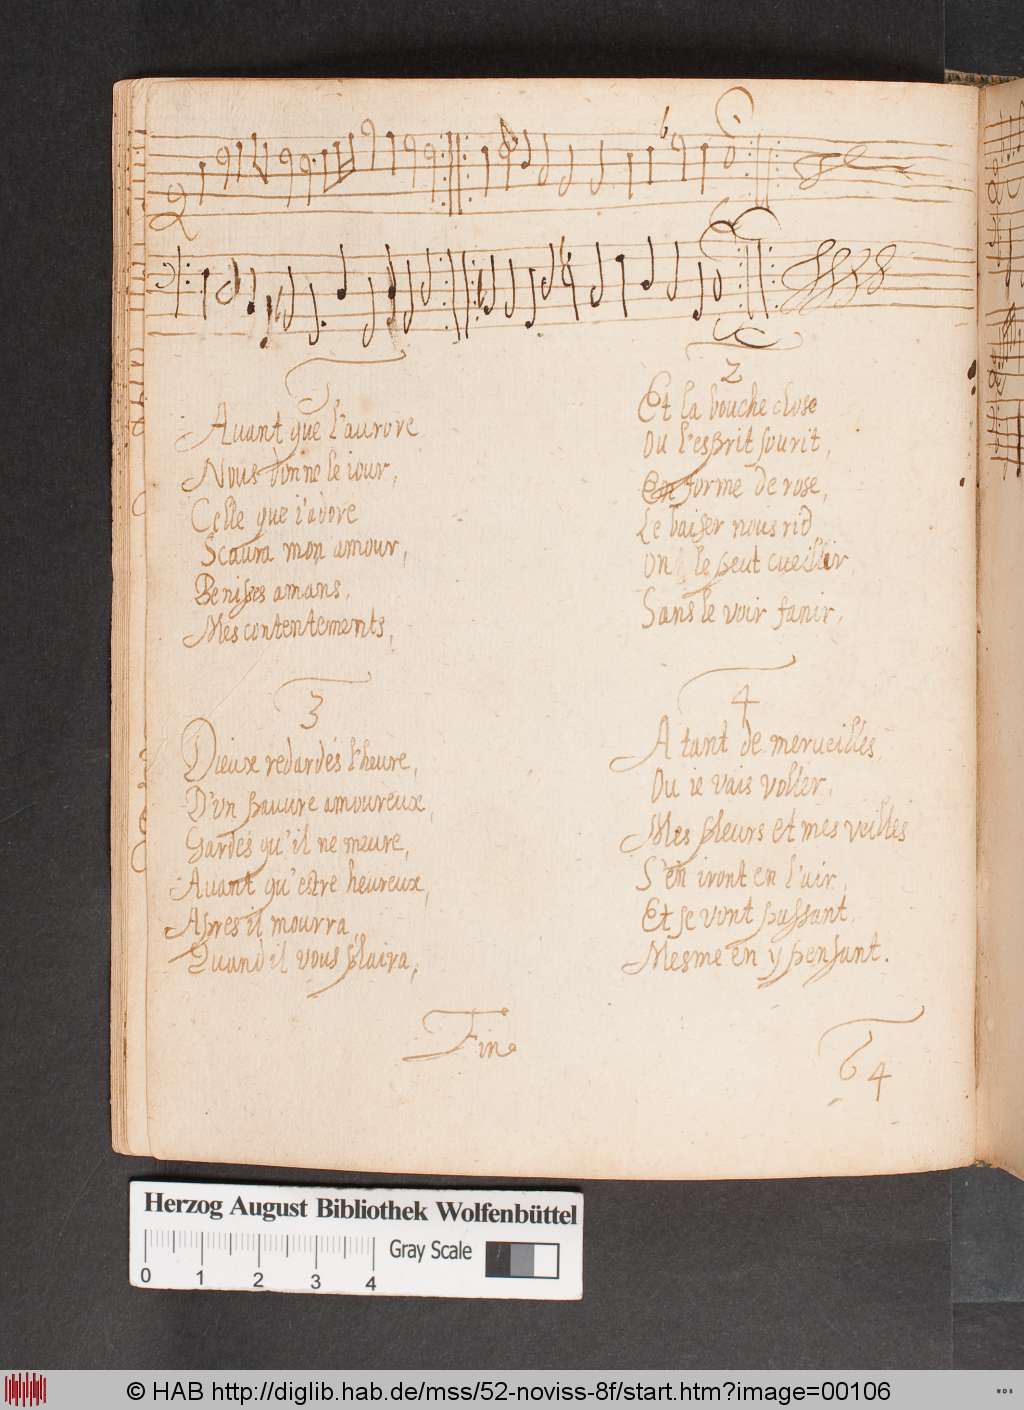 Auant que l'aurore
Nous donne le iour,
Celle que i'adore
Scaura mon amour,
Benisses amans,
Mes contentements,
2
Et la bouche close
Ou l'esprit sourit,
En forme de rose,
Le baiser nous rid
On le peut cueillir
Sans le voir fanir,
3
Dieux redardés l'heure,
D'vn pauure amoureux,
Gardés qu'il ne meure,
Auant qu'estre heureux,
Apres il mourra,
Quand il vous plaira,
4
A tant de merueilles,
Ou ie vais voller,
Mes pleurs et mes veilles
S'en iront en l'air,
Et se vont passant,
Mesme en y pensant.
Fin
4
Herzog August Bibliothek Wolfenbüttel
Gray Scale
0 1 2 3 4
© HAB http://diglib.hab.de/mss/52-noviss-8f/start.htm?image=00106